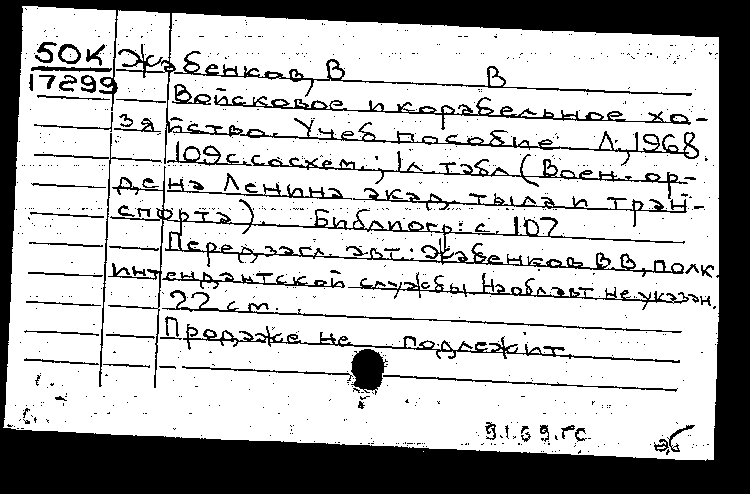 50К Жабенков, В В
17299
Войсковое и корабельное хо-
зяйство. Учеб пособие Л., 1968.
109 с. со схем.; 1 л. табл (Воен. ор-
дена Ленина акад. тыла и тран-
спорта). Библиогр: с. 107
Перед загл. авт.: Жабенков В.В., полк.
интендантской службы На обл авт не указан.
22 см.
Продаже не подлежит.
9.1.69. ГС